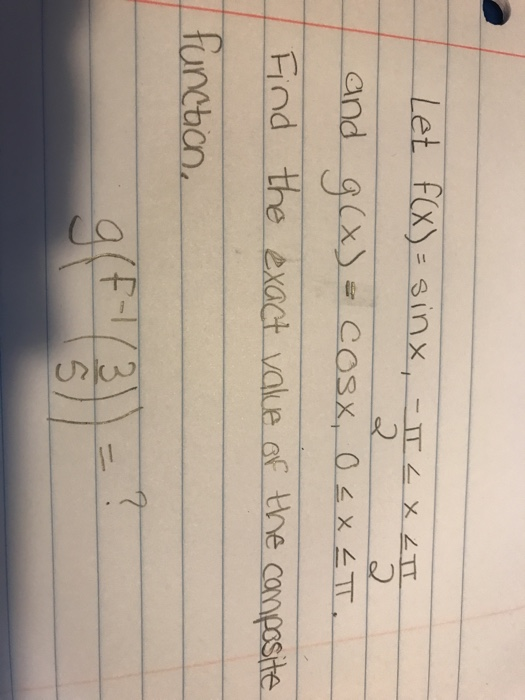 Let f(x) = sin x, -π/2 ≤ x ≤ π/2
and g(x) = cosx, 0 ≤ x ≤ π.
Find the exact value of the composite
function.
g(f⁻¹(3/5)) = ?